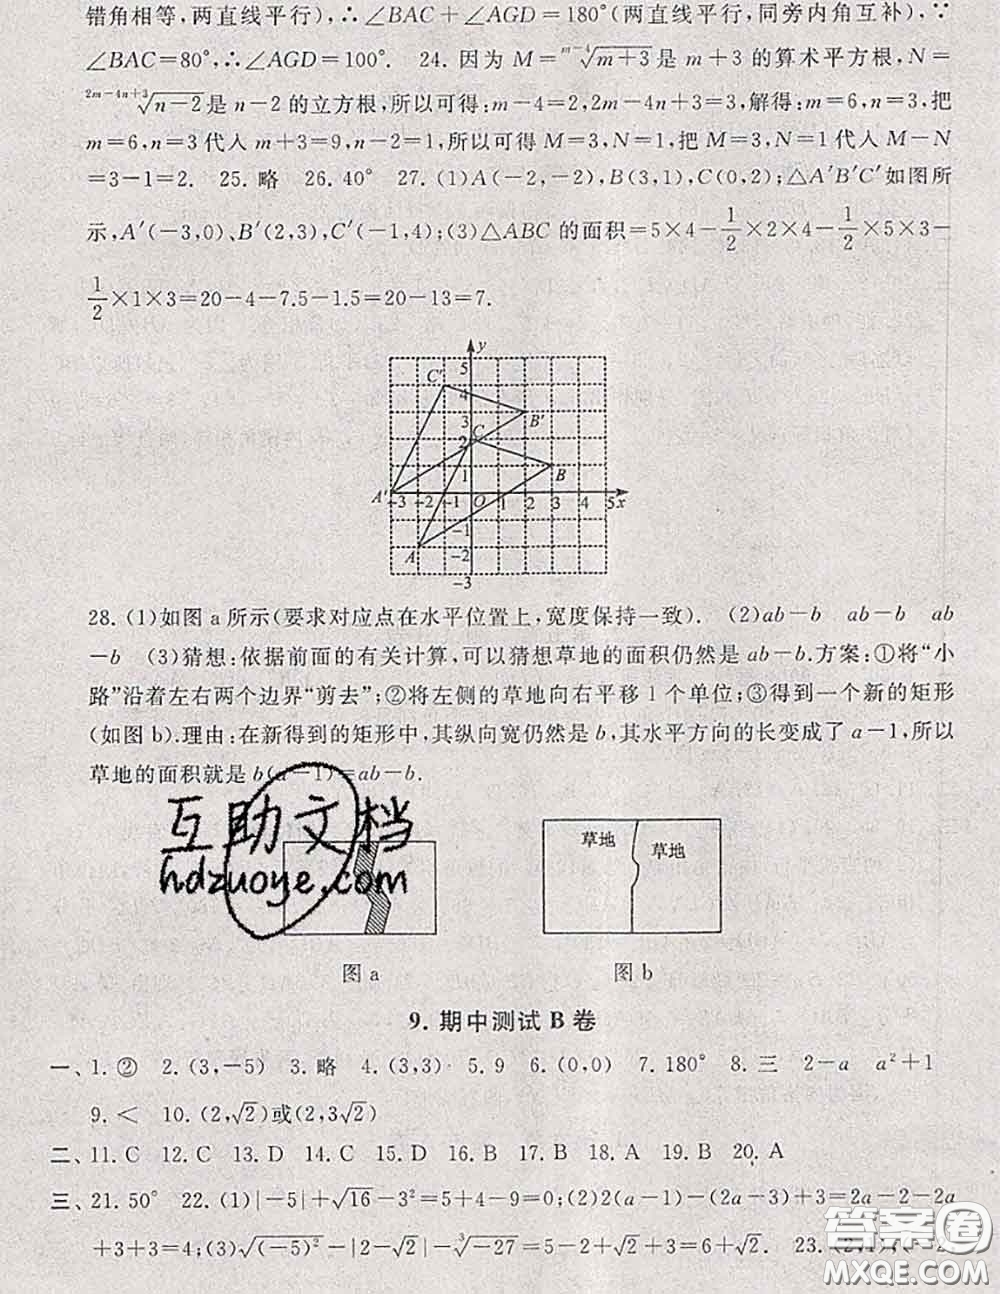 错角相等,两直线平行),∴∠BAC+∠AGD=180°(两直线平行,同旁内角互补),∵
∠BAC=80°,∴∠AGD=100°. 24. 因为 M=ᵐ⁻⁴√(m+3)是 m+3 的算术平方根,N=
²ᵐ⁻⁴ⁿ⁺³√(n-2)是 n-2 的立方根,所以可得:m-4=2,2m-4n+3=3,解得:m=6,n=3,把
m=6,n=3代人 m+3=9,n-2=1,所以可得 M=3,N=1,把 M=3,N=1代人 M-N
=3-1=2. 25. 略 26. 40° 27. (1)A(-2,-2),B(3,1),C(0,2);△A′B′C′如图所
示,A′(-3,0)、B′(2,3),C′(-1,4);(3)△ABC 的面积=5×4-1/2×2×4-1/2×5×3-
1/2×1×3=20-4-7.5-1.5=20-13=7.
y
5
C′
4
3
B′
C
2
1
B
A′
-3 -2 -1 O 1 2 3 4 5 x
-1
A
-2
-3
28. (1)如图 a 所示(要求对应点在水平位置上,宽度保持一致). (2)ab-b ab-b ab
-b (3)猜想:依据前面的有关计算,可以猜想草地的面积仍然是 ab-b.方案:①将“小
路”沿着左右两个边界“剪去”;②将左侧的草地向右平移 1 个单位;③得到一个新的矩形
(如图 b).理由:在新得到的矩形中,其纵向宽仍然是 b,其水平方向的长变成了 a-1,所以
草地的面积就是 b(a-1)=ab-b.
互助文档
hdzuoye.com
草地 草地
图 a 图 b
9. 期中测试 B 卷
一、1. ② 2. (3,-5) 3. 略 4. (3,3) 5. 9 6. (0,0) 7. 180° 8. 三 2-a a²+1
9. < 10. (2,√2)或(2,3√2)
二、11. C 12. C 13. D 14. C 15. D 16. B 17. B 18. A 19. B 20. A
三、21. 50° 22. (1)|-5|+√16-3²=5+4-9=0;(2)2(a-1)-(2a-3)+3=2a-2-2a
+3+3=4;(3)√(-5)²-|2-√2|-³√-27=5-2+√2+3=6+√2. 23. (2,1)
答案圈
MXQE.COM